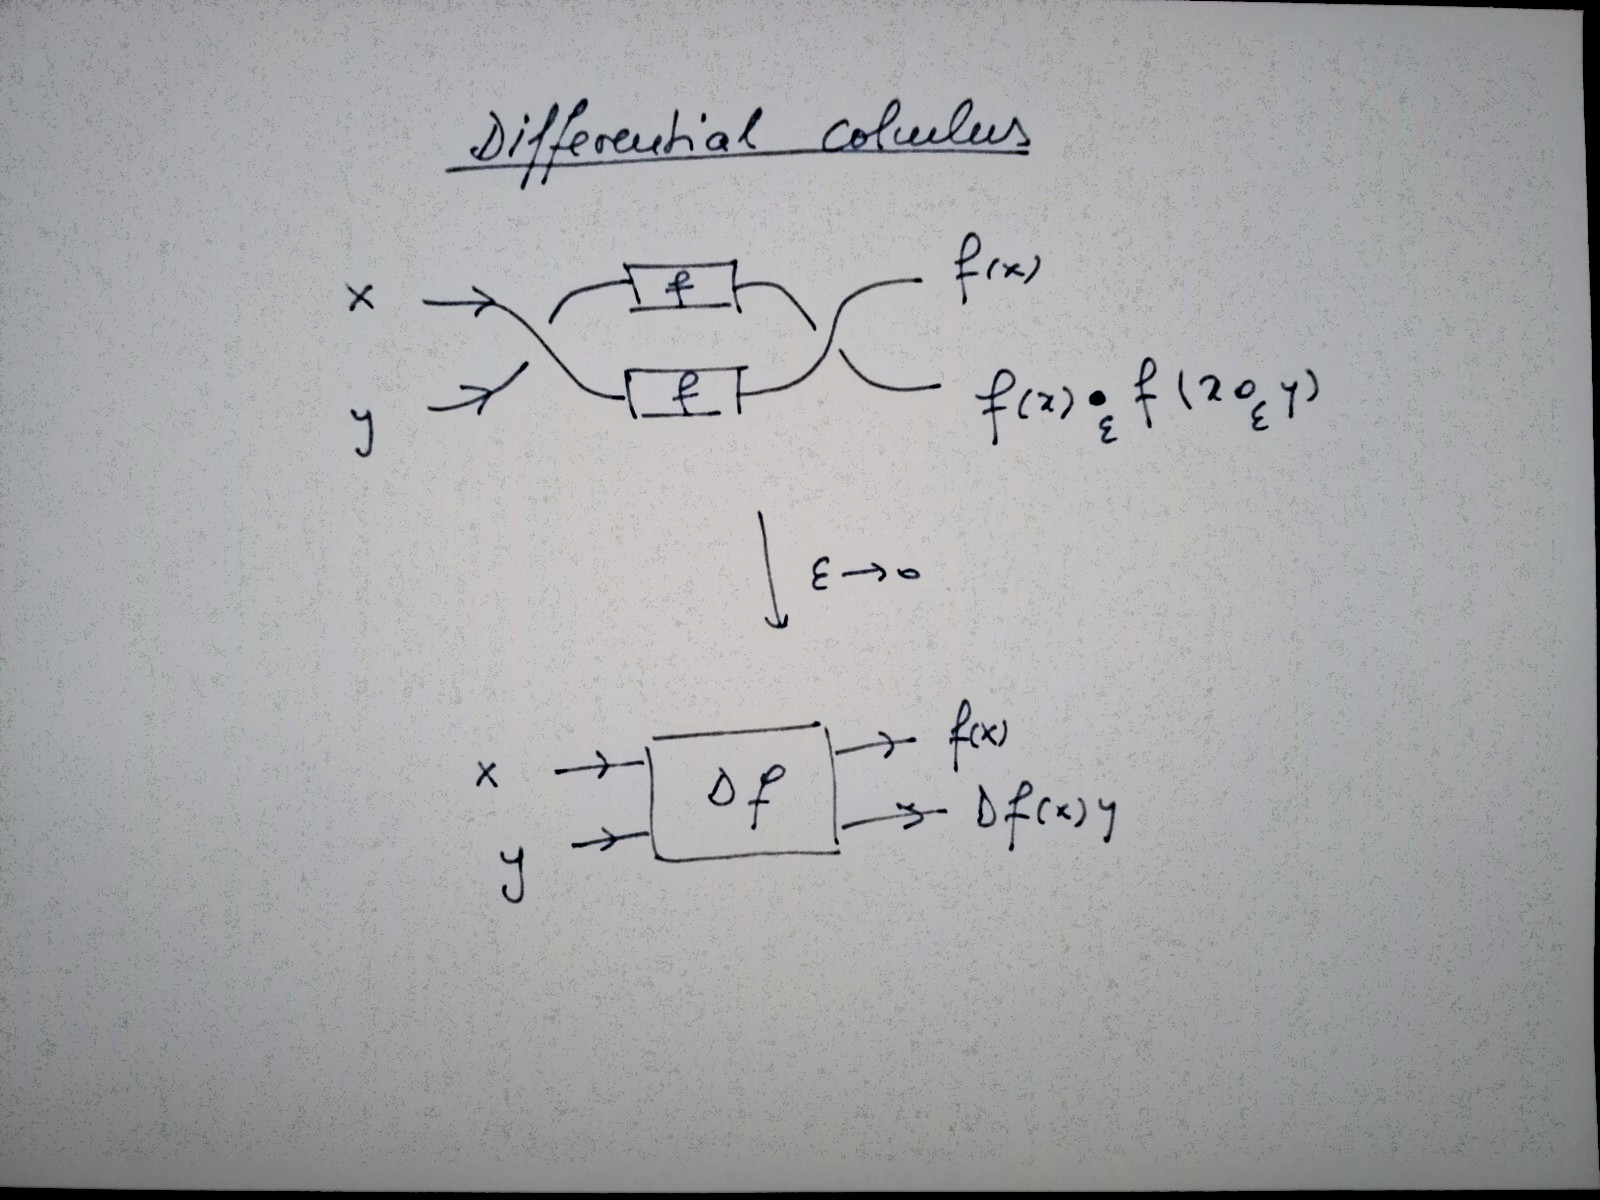 Differential calculus
x f f(x)
y f f(x) •ε f(x ∘ε y)
ε → 0
x Df f(x)
y Df(x)y